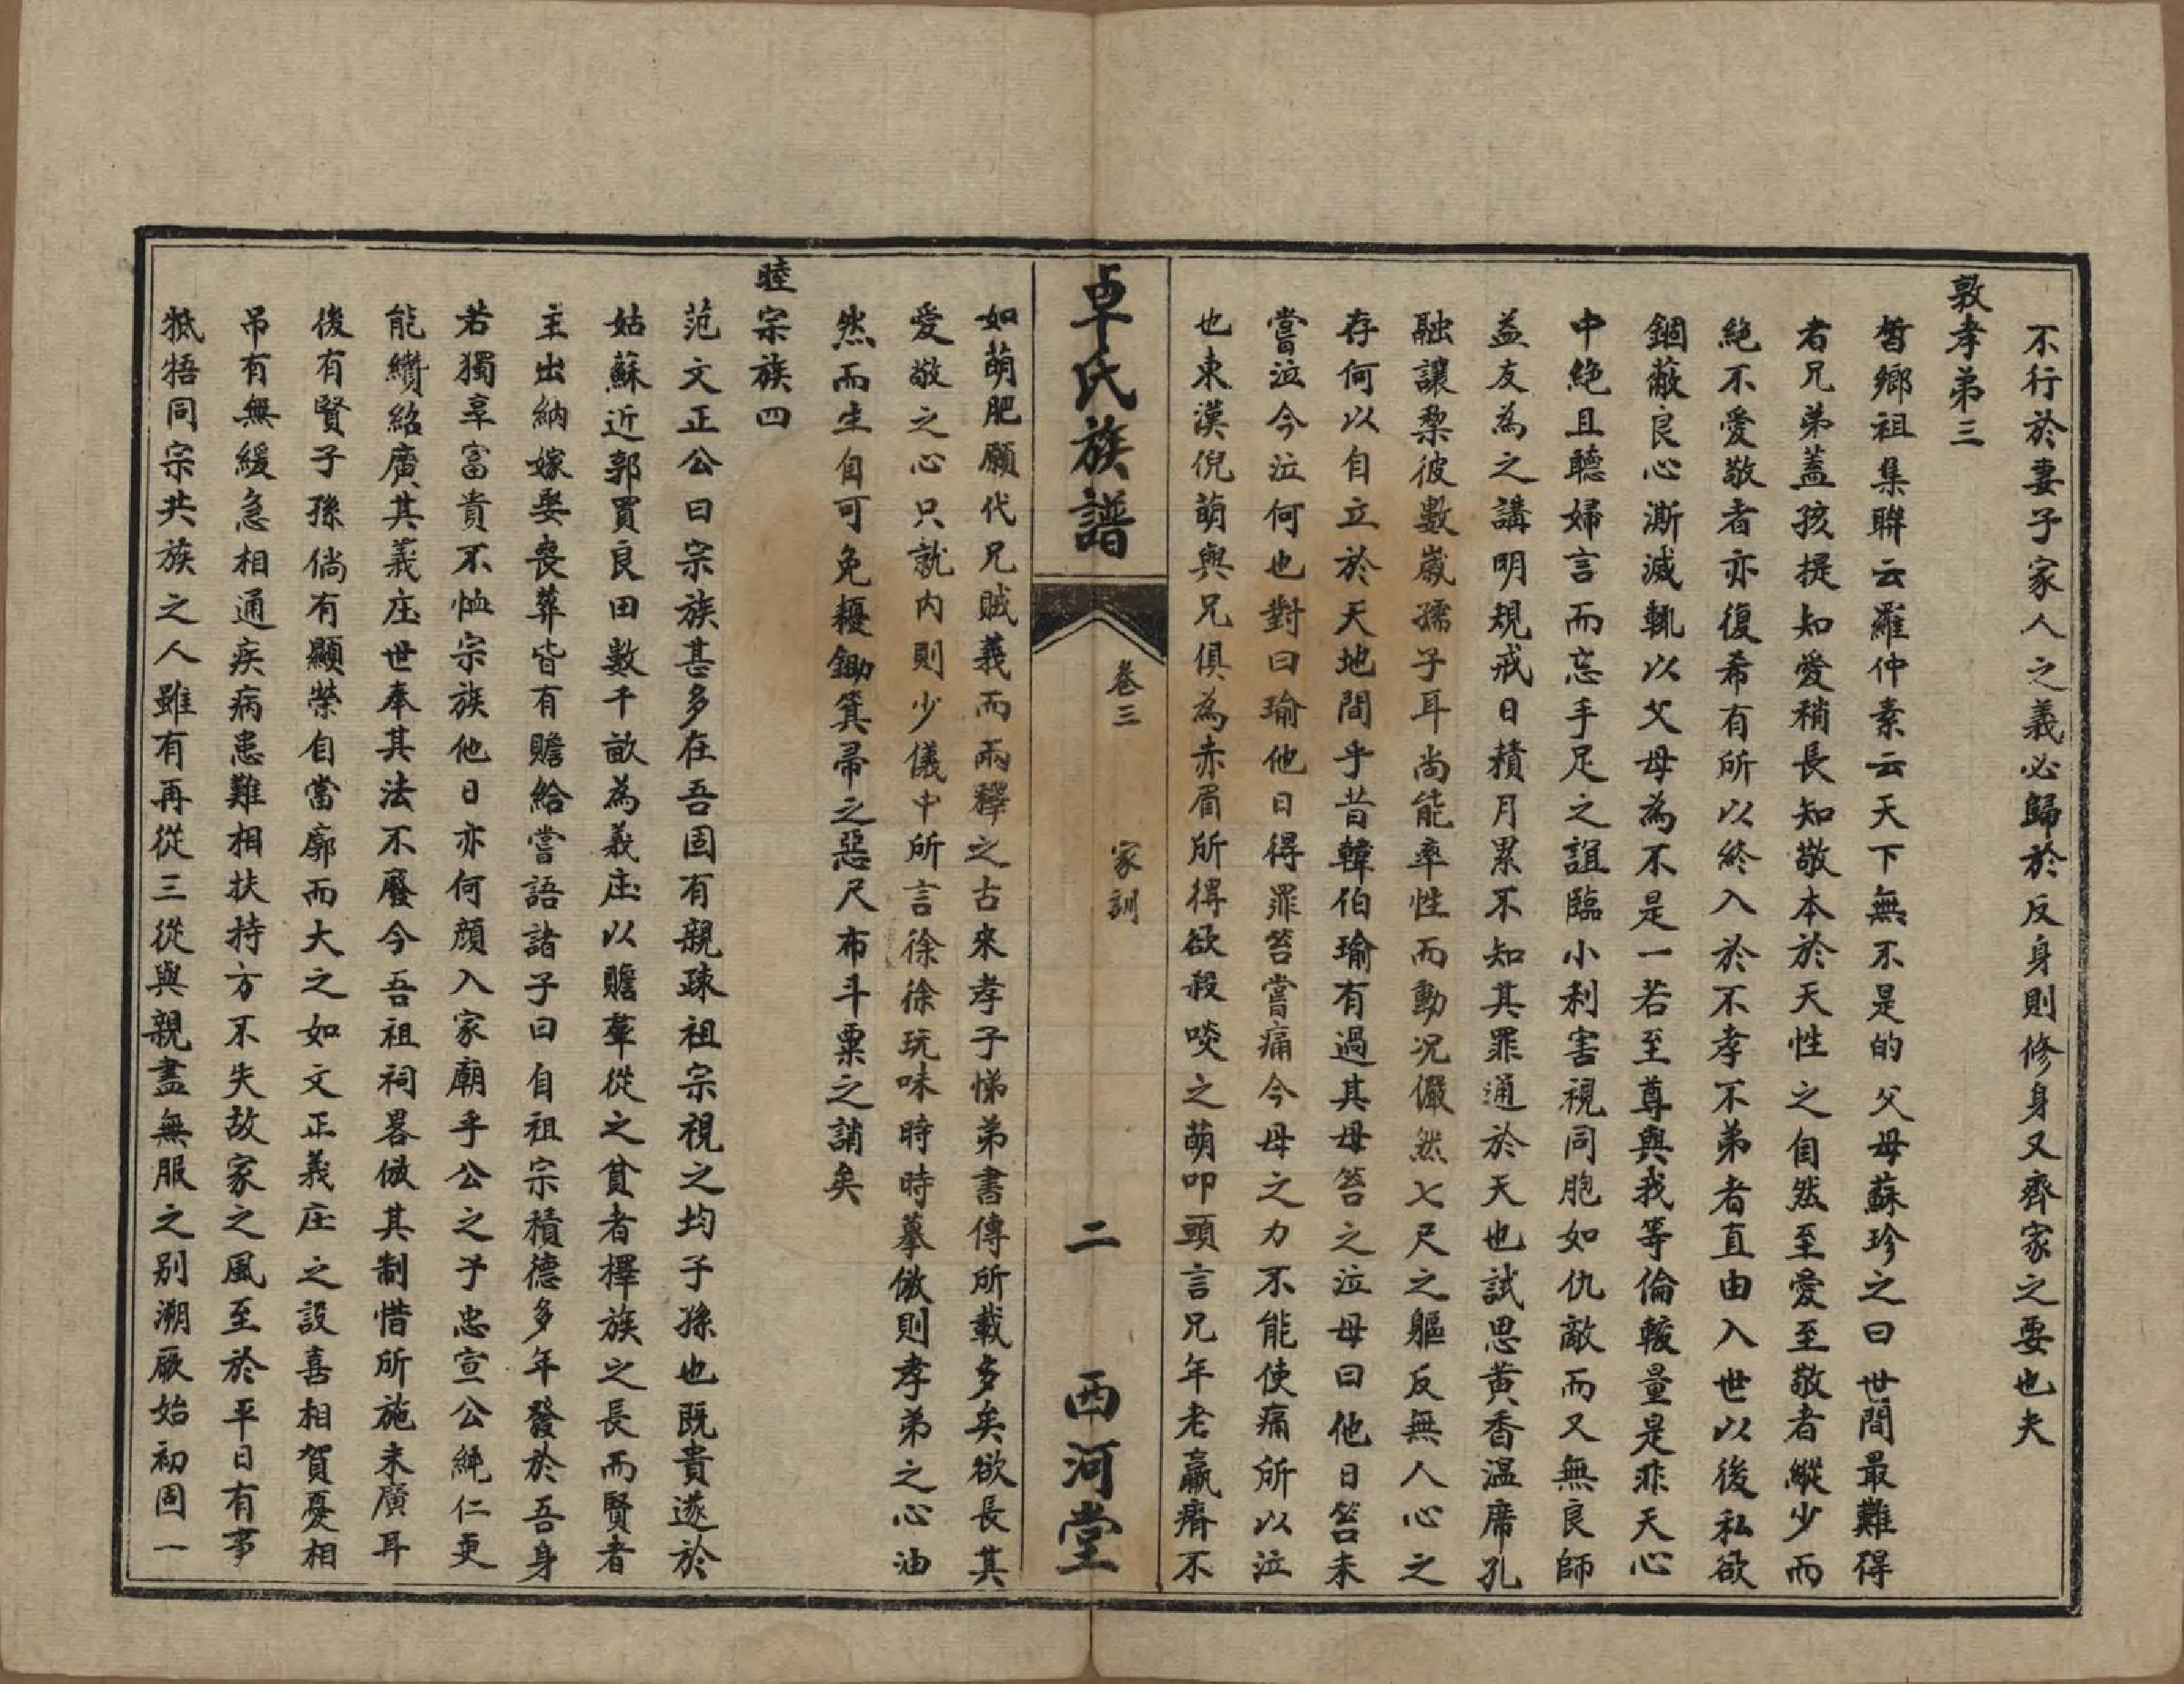 不行於妻子家人之義必歸於反身則修身又齊家之要也夫
敦孝弟三
晳鄉祖集聨云羅仲素云天下無不是的父母蘇珍之曰世間最難得
者兄弟蓋孩提知愛稍長知敬本於天性之自然至愛至敬者縱少而
絶不愛敬者亦復希有所以終入於不孝不弟者直由入世以後私欲
錮蔽良心澌滅輒以父母為不是一若至尊與我等倫較量是非天心
中絶且聽婦言而忘手足之誼臨小利害視同胞如仇敵而又無良師
益友為之講明規戒日積月累不知其罪通於天也試思黄香温席孔
融讓棃彼數嵗孺子耳尚能率性而動况儼然七尺之軀反無人心之
存何以自立於天地間乎昔韓伯瑜有過其母笞之泣母曰他日笞未
嘗泣今泣何也對曰瑜他日得罪笞嘗痛今母之力不能使痛所以泣
也東漢倪萌與兄俱為赤眉所得欲殺啖之萌叩頭言兄年老羸瘠不
卓氏族譜
卷三
家訓
二
西河堂
如萌肥願代兄賊義而兩釋之古來孝子悌弟書傳所載多矣欲長其
愛敬之心只就內則少儀中所言徐徐玩味時時摹倣則孝弟之心油
然而生自可免耰鋤箕帚之惡尺布斗粟之誚矣
睦宗族四
范文正公曰宗族甚多在吾固有親疎祖宗視之均子孫也既貴遂於
姑蘇近郭買良田數千畝為義庄以贍羣從之貧者擇族之長而賢者
主出納嫁娶喪葬皆有贍給嘗語諸子曰自祖宗積德多年發於吾身
若獨享富貴不恤宗族他日亦何顔入家廟乎公之子忠宣公純仁更
能纘紹廣其義庄世奉其法不廢今吾祖祠畧倣其制惜所施未廣耳
後有賢子孫倘有顯榮自當廓而大之如文正義庄之設喜相賀憂相
吊有無緩急相通疾病患難相扶持方不失故家之風至於平日有事
牴牾同宗共族之人雖有再從三從與親盡無服之别溯厥始初固一